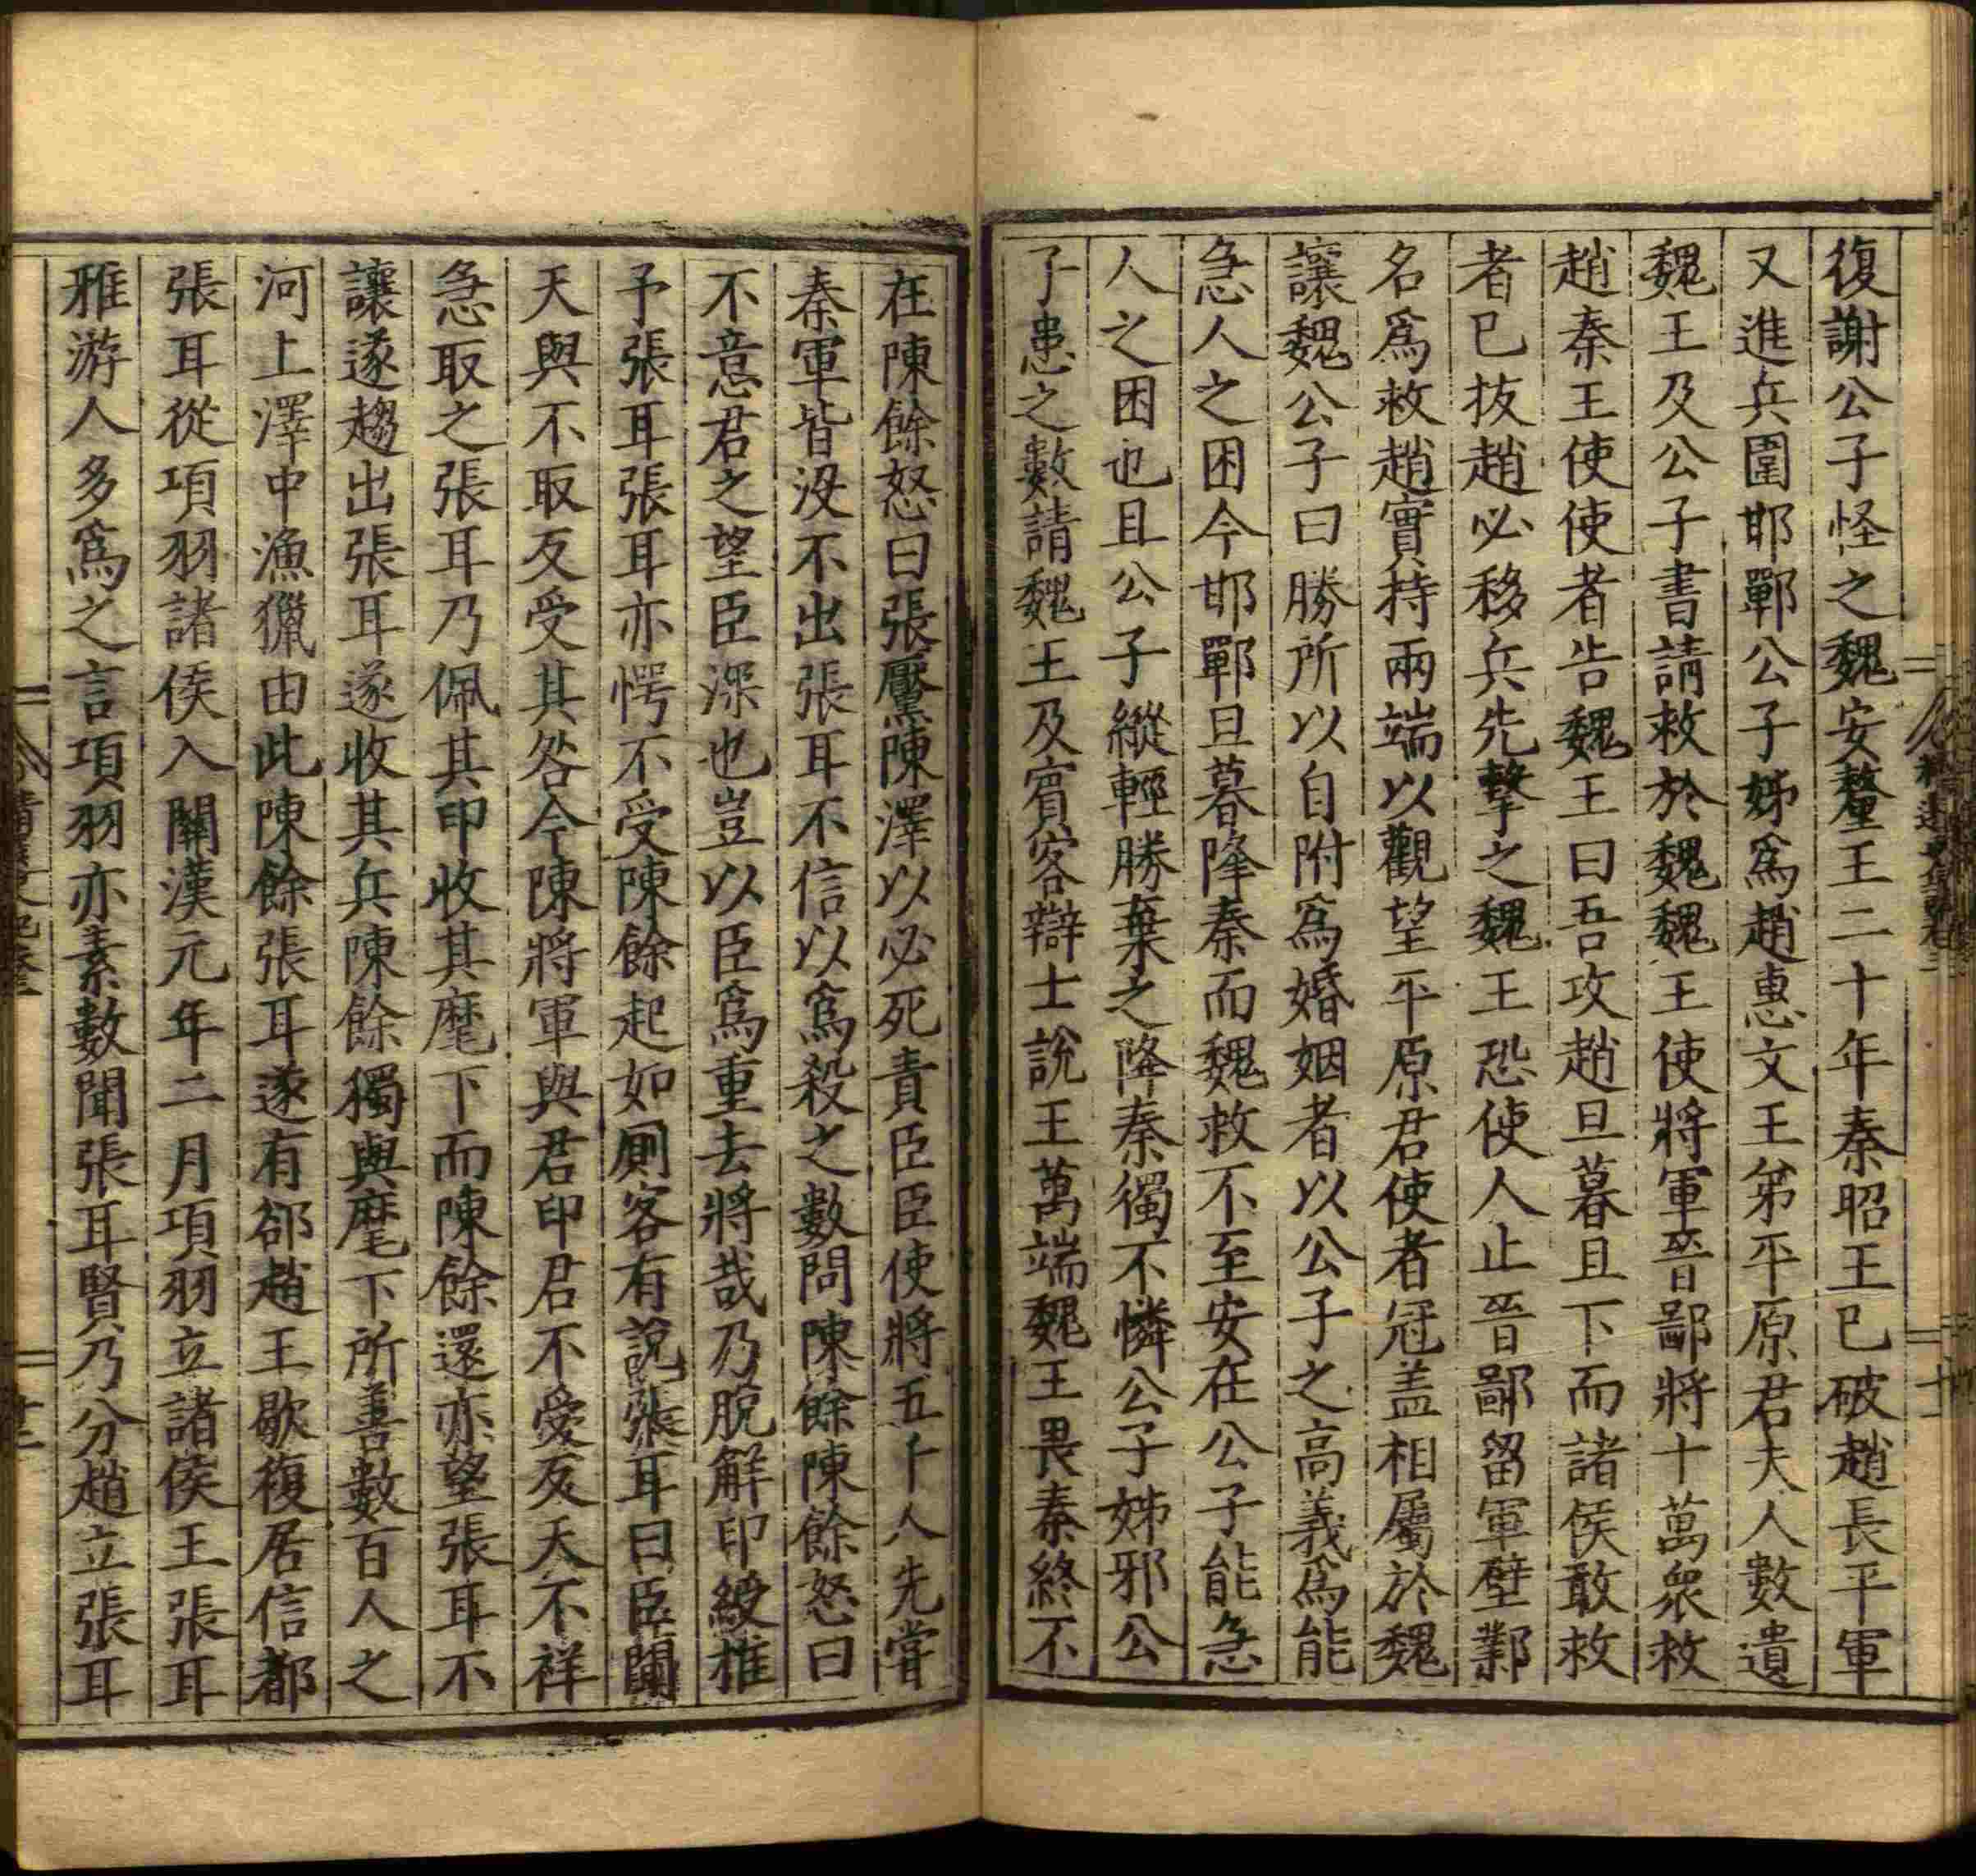 復謝公子怪之魏安釐王二十年秦昭王已破趙長平軍
又進兵圍邯鄲公子姊爲趙惠文王弟平原君夫人數遺
魏王及公子書請救於魏魏王使將軍晉鄙將十萬衆救
趙秦王使使者告魏王曰吾攻趙旦暮且下而諸侯敢救
者已拔趙必移兵先擊之魏王恐使人止晉鄙留軍壁鄴
名爲救趙實持兩端以觀望平原君使者冠盖相屬於魏
讓魏公子曰勝所以自附爲婚姻者以公子之高義爲能
急人之困今邯鄲旦暮降秦而魏救不至安在公子能急
人之困也且公子縱輕勝棄之降秦獨不憐公子姊邪公
子患之數請魏王及賓客辯士說王萬端魏王畏秦終不
在陳餘怒曰張黶陳澤以必死責臣臣使將五千人先嘗
秦軍皆没不出張耳不信以爲殺之數問陳餘陳餘怒曰
不意君之望臣深也豈以臣爲重去將哉乃脫解印綬推
予張耳張耳亦愕不受陳餘起如厠客有說張耳曰臣聞
天與不取反受其咎今陳將軍與君印君不受反天不祥
急取之張耳乃佩其印收其麾下而陳餘還亦望張耳不
讓遂趨出張耳遂收其兵陳餘獨與麾下所善數百人之
河上澤中漁獵由此陳餘張耳遂有郤趙王歇復居信都
張耳從項羽諸侯入關漢元年二月項羽立諸侯王張耳
雅游人多爲之言項羽亦素數聞張耳賢乃分趙立張耳